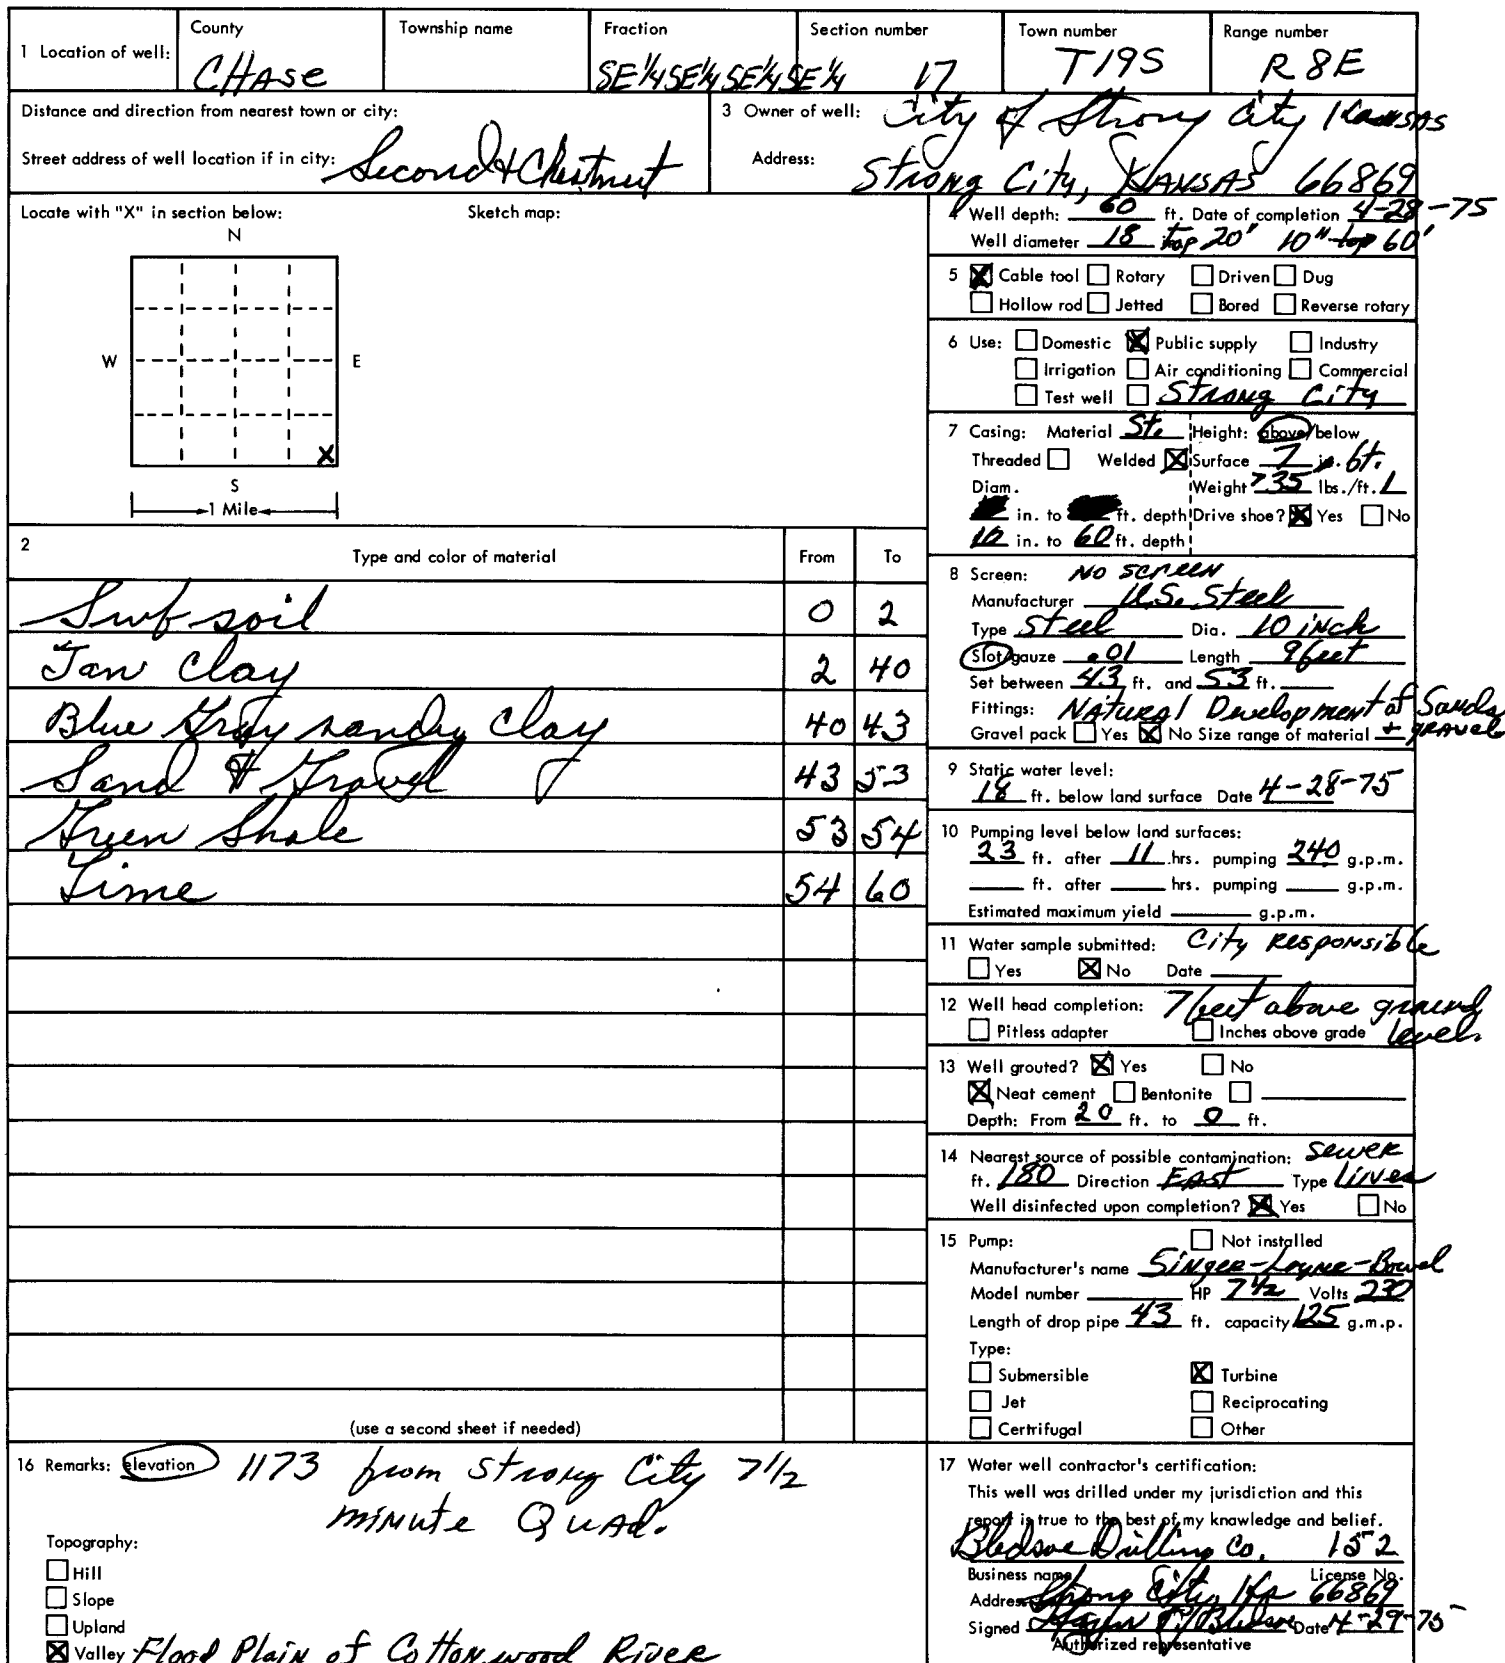 County Township name Fraction Section number Town number Range number
1 Location of well: CHASE SE¼ SE¼ SE¼ SE¼ 17 T19S R8E
Distance and direction from nearest town or city:
Street address of well location if in city: Second & Chestnut
3 Owner of well: City of Strong City Kansas
Address: Strong City, KANSAS 66869
Locate with "X" in section below: Sketch map:
N
W E
X
S
1 Mile
4 Well depth: 60 ft. Date of completion 4-28-75
Well diameter 18 top 20' 10" 60'
5 X Cable tool Rotary Driven Dug
Hollow rod Jetted Bored Reverse rotary
6 Use: Domestic X Public supply Industry
Irrigation Air conditioning Commercial
Test well Strong City
7 Casing: Material St. Height: above/below
Threaded Welded X Surface 7 in. ft.
Diam. Weight >35 lbs./ft.
in. to ft. depth Drive shoe? X Yes No
10 in. to 60 ft. depth
8 Screen: NO SCREEN
Manufacturer U.S. Steel
Type Steel Dia. 10 inch
Slot/gauze .01 Length 9 feet
Set between 43 ft. and 53 ft.
Fittings: Natural Development of Sands
Gravel pack Yes X No Size range of material + gravel
9 Static water level:
18 ft. below land surface Date 4-28-75
10 Pumping level below land surfaces:
23 ft. after 11 hrs. pumping 240 g.p.m.
ft. after hrs. pumping g.p.m.
Estimated maximum yield g.p.m.
11 Water sample submitted: City Responsible
Yes X No Date
12 Well head completion: 7 feet above ground
Pitless adapter Inches above grade level.
13 Well grouted? X Yes No
X Neat cement Bentonite
Depth: From 20 ft. to 0 ft.
14 Nearest source of possible contamination: Sewer
ft. 180 Direction East Type Lines
Well disinfected upon completion? X Yes No
15 Pump: Not installed
Manufacturer's name Singer-Layne-Bowel
Model number HP 7½ Volts 230
Length of drop pipe 43 ft. capacity 125 g.m.p.
Type:
Submersible X Turbine
Jet Reciprocating
Certrifugal Other
2 Type and color of material From To
Sub soil 0 2
Tan Clay 2 40
Blue Gray sandy Clay 40 43
Sand & Gravel 43 53
Green Shale 53 54
Lime 54 60
(use a second sheet if needed)
16 Remarks: elevation 1173 from Strong City 7½
minute Quad.
Topography:
Hill
Slope
Upland
X Valley Flood Plain of Cottonwood River
17 Water well contractor's certification:
This well was drilled under my jurisdiction and this
report is true to the best of my knowledge and belief.
Bledsoe Drilling Co. 152
Business name License No.
Address Strong City, Ks 66869
Signed Bledsoe Date 4-29-75
Authorized representative